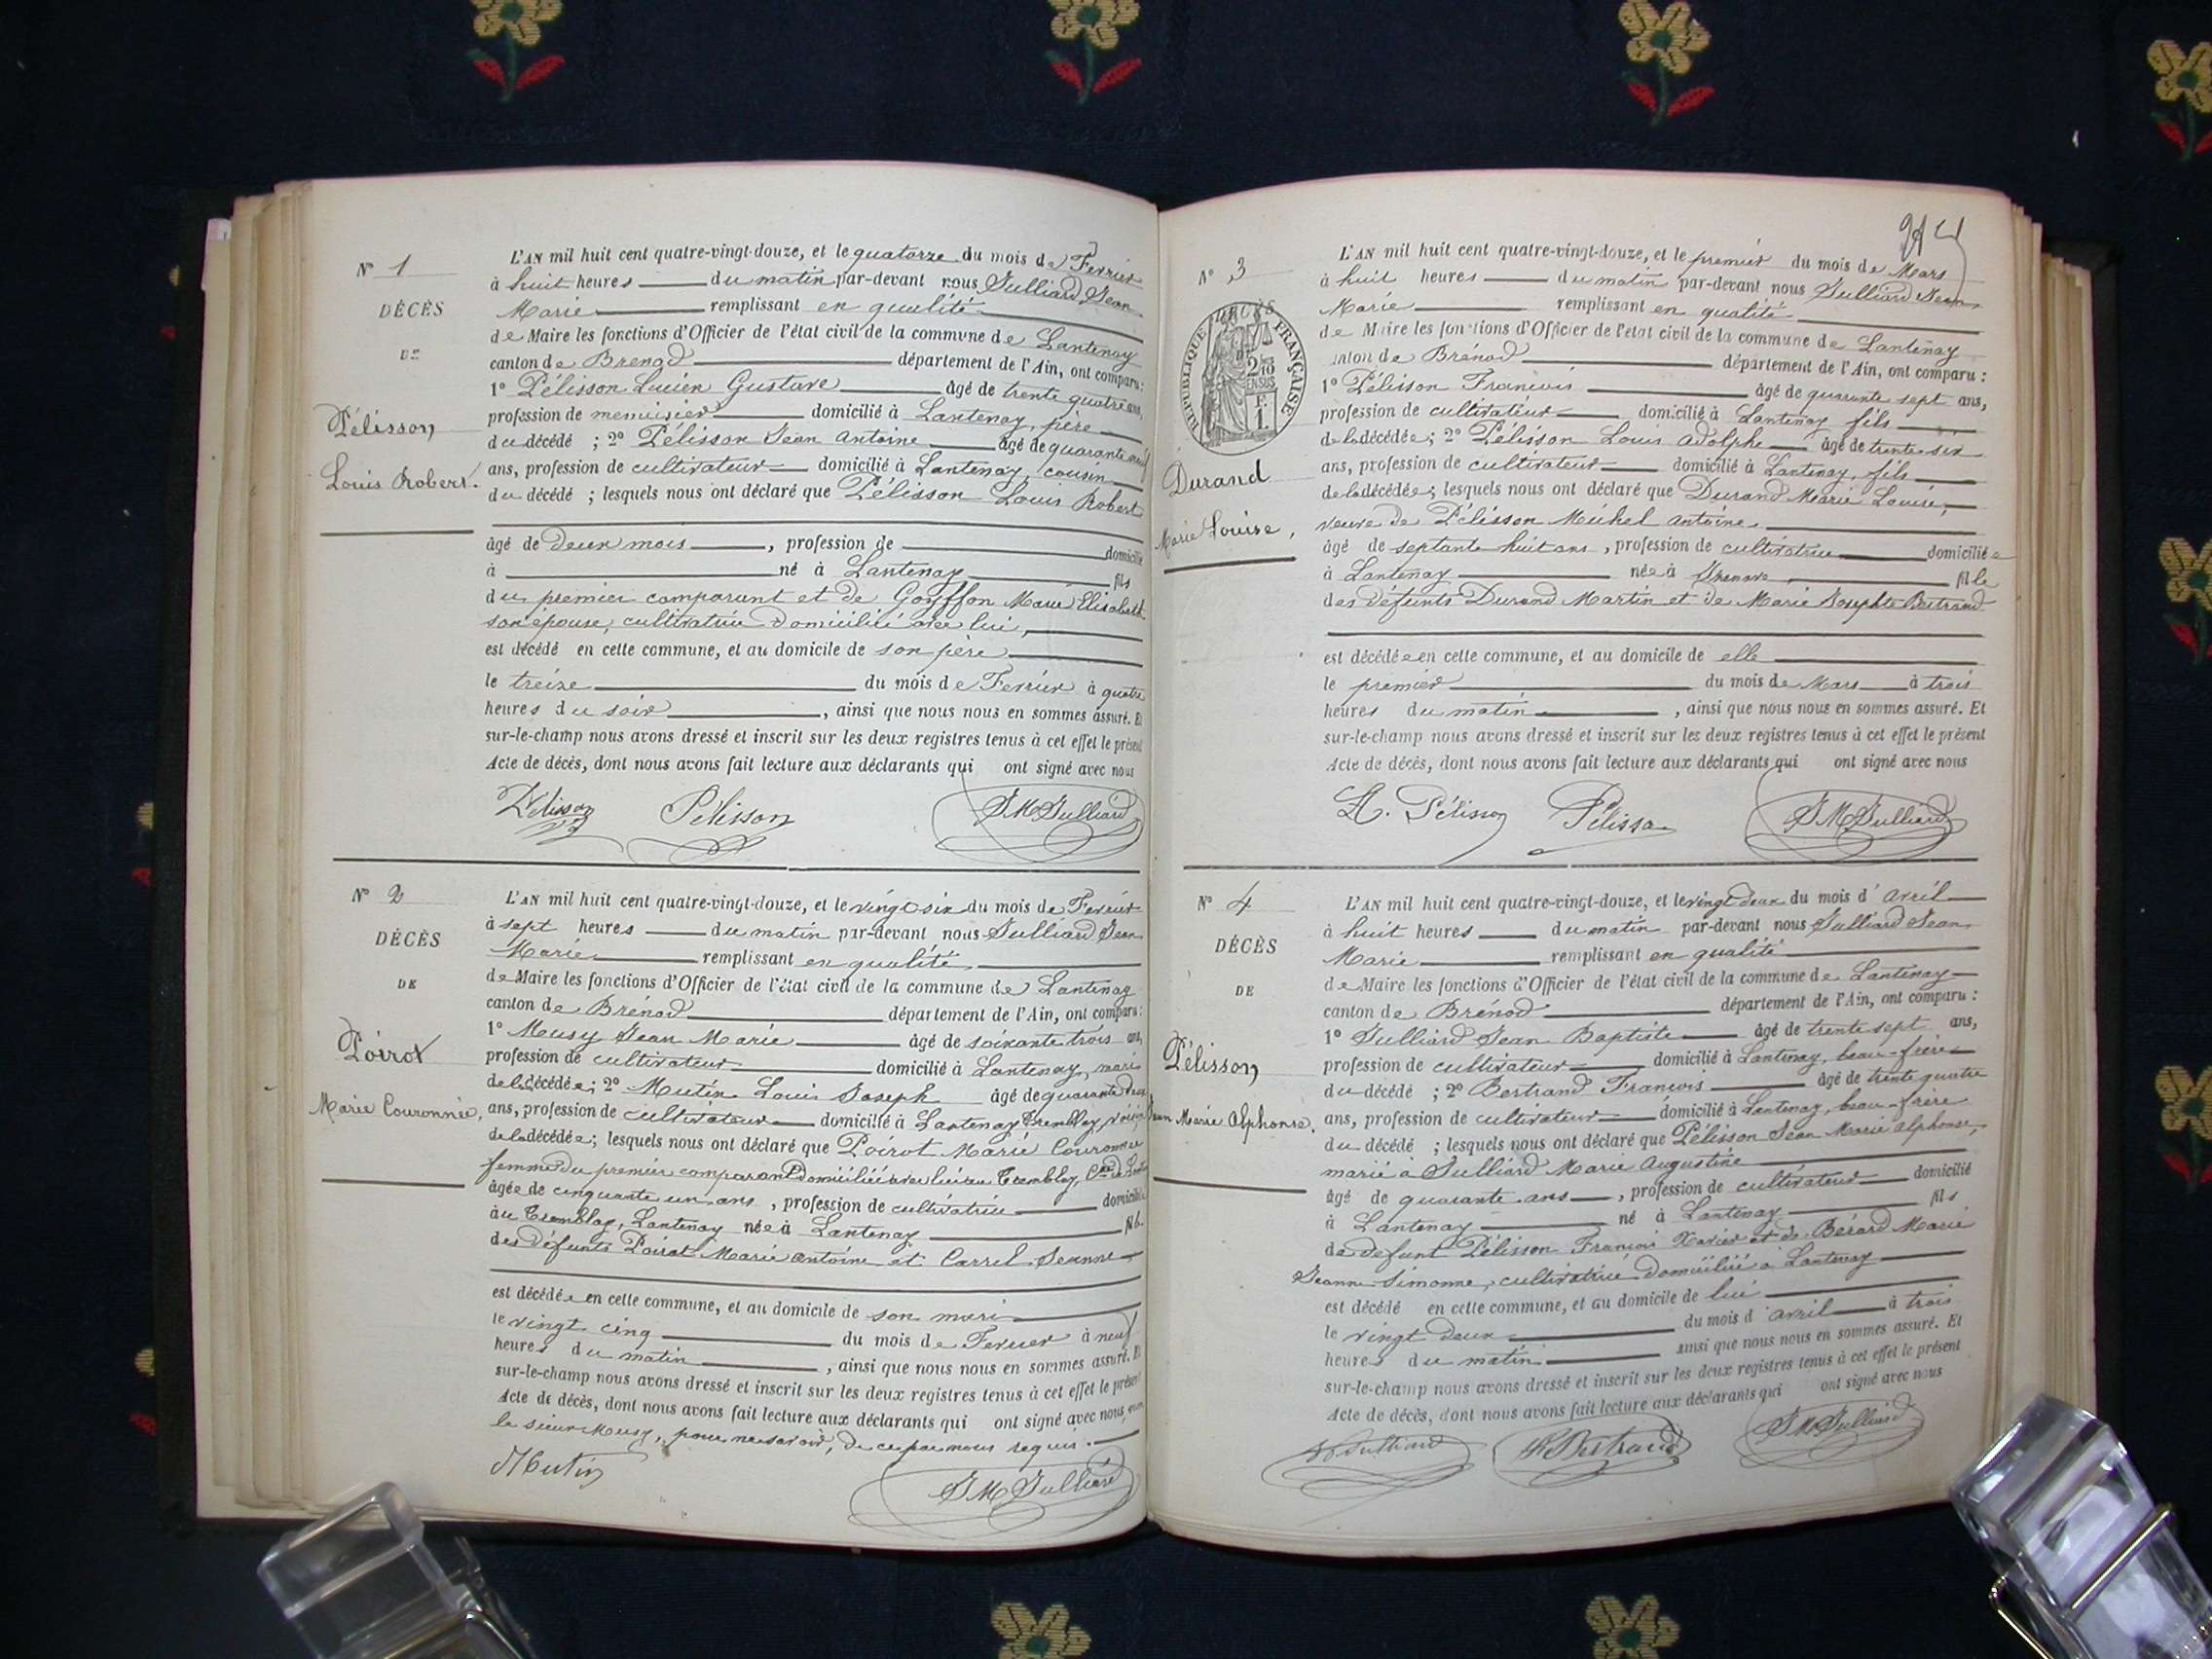 N° 1
DÉCÈS
DE
Pélisson
Louis Robert.
L'AN mil huit cent quatre-vingt-douze, et le quatorze du mois de Fevrier
à huit heures du matin par-devant nous Julliard Jean
Marie remplissant en qualité
de Maire les fonctions d'Officier de l'état civil de la commune de Lantenay
canton de Brenod département de l'Ain, ont comparu :
1° Pélisson Lucien Gustave âgé de trente quatre ans,
profession de menuisier domicilié à Lantenay, père
du décédé ; 2° Pélisson Jean Antoine âgé de quarante neuf
ans, profession de cultivateur domicilié à Lantenay, cousin
du décédé ; lesquels nous ont déclaré que Pélisson Louis Robert
âgé de deux mois, profession de domicilié
à né à Lantenay fils
du premier comparant et de Goyffon Marie Elisabeth
son épouse, cultivatrice domicilié avec lui,
est décédé en cette commune, et au domicile de son père
le treize du mois de Fevrier à quatre
heures du soir, ainsi que nous nous en sommes assuré. Et
sur-le-champ nous avons dressé et inscrit sur les deux registres tenus à cet effet le présent
Acte de décès, dont nous avons fait lecture aux déclarants qui ont signé avec nous
Pélisson Pélisson JMJulliard
N° 2
DÉCÈS
DE
Poirot
Marie Couronnée,
L'AN mil huit cent quatre-vingt-douze, et le vingt six du mois de Fevrier
à sept heures du matin par-devant nous Julliard Jean
Marie remplissant en qualité
de Maire les fonctions d'Officier de l'état civil de la commune de Lantenay
canton de Brénod département de l'Ain, ont comparu :
1° Musy Jean Marie âgé de soixante trois ans,
profession de cultivateur domicilié à Lantenay, mari
de la décédée ; 2° Mutin Louis Joseph âgé de quarante deux
ans, profession de cultivateur domicilié à Lantenay Tremblay, voisin
de la décédée ; lesquels nous ont déclaré que Poirot Marie Couronnée
femme du premier comparant domiciliée avec lui au Tremblay, Cne de
âgée de cinquante un ans, profession de cultivatrice domiciliée
au Tremblay, Lantenay née à Lantenay fille
des défunts Poirot Marie Antoine et Carrel Jeanne
est décédée en cette commune, et au domicile de son mari
le vingt cinq du mois de Fevrier à neuf
heures du matin, ainsi que nous nous en sommes assuré. Et
sur-le-champ nous avons dressé et inscrit sur les deux registres tenus à cet effet le présent
Acte de décès, dont nous avons fait lecture aux déclarants qui ont signé avec nous,
le sieur Musy, pour ne savoir, de ce par nous requis.
Mutin JMJulliard
N° 3
RÉPUBLIQUE FRANÇAISE
2/10 EN SUS
F. 1.
Durand
Marie Louise,
L'AN mil huit cent quatre-vingt-douze, et le premier du mois de Mars
à huit heures du matin par-devant nous Julliard Jean
Marie remplissant en qualité
de Maire les fonctions d'Officier de l'état civil de la commune de Lantenay
canton de Brénod département de l'Ain, ont comparu :
1° Pélisson François âgé de quarante sept ans,
profession de cultivateur domicilié à Lantenay fils
de la décédée ; 2° Pélisson Louis Adolphe âgé de trente six
ans, profession de cultivateur domicilié à Lantenay, fils
de la décédée ; lesquels nous ont déclaré que Durand Marie Louise,
veuve de Pélisson Michel Antoine.
âgé de septante huit ans, profession de cultivatrice domiciliée
à Lantenay née à fille
des défunts Durand Martin et de Marie Josephte Bertrand
est décédée en cette commune, et au domicile de elle
le premier du mois de Mars à trois
heures du matin, ainsi que nous nous en sommes assuré. Et
sur-le-champ nous avons dressé et inscrit sur les deux registres tenus à cet effet le présent
Acte de décès, dont nous avons fait lecture aux déclarants qui ont signé avec nous
A. Pélisson Pélisson JMJulliard
N° 4
DÉCÈS
DE
Pélisson
Jean Marie Alphonse,
L'AN mil huit cent quatre-vingt-douze, et le vingt deux du mois d'avril
à huit heures du matin par-devant nous Julliard Jean
Marie remplissant en qualité
de Maire les fonctions d'Officier de l'état civil de la commune de Lantenay
canton de Brénod département de l'Ain, ont comparu :
1° Julliard Jean Baptiste âgé de trente sept ans,
profession de cultivateur domicilié à Lantenay, beau-frère
du décédé ; 2° Bertrand François âgé de trente quatre
ans, profession de cultivateur domicilié à Lantenay, beau-frère
du décédé ; lesquels nous ont déclaré que Pélisson Jean Marie Alphonse,
marié à Julliard Marie Augustine
âgé de quarante ans, profession de cultivateur domicilié
à Lantenay né à Lantenay fils
de défunt Pélisson François Xavier et de Bérard Marie
Jeanne Simonne, cultivatrice domiciliée à Lantenay
est décédé en cette commune, et au domicile de lui
le vingt deux du mois d'avril à trois
heures du matin ainsi que nous nous en sommes assuré. Et
sur-le-champ nous avons dressé et inscrit sur les deux registres tenus à cet effet le présent
Acte de décès, dont nous avons fait lecture aux déclarants qui ont signé avec nous
Julliard Bertrand JMJulliard